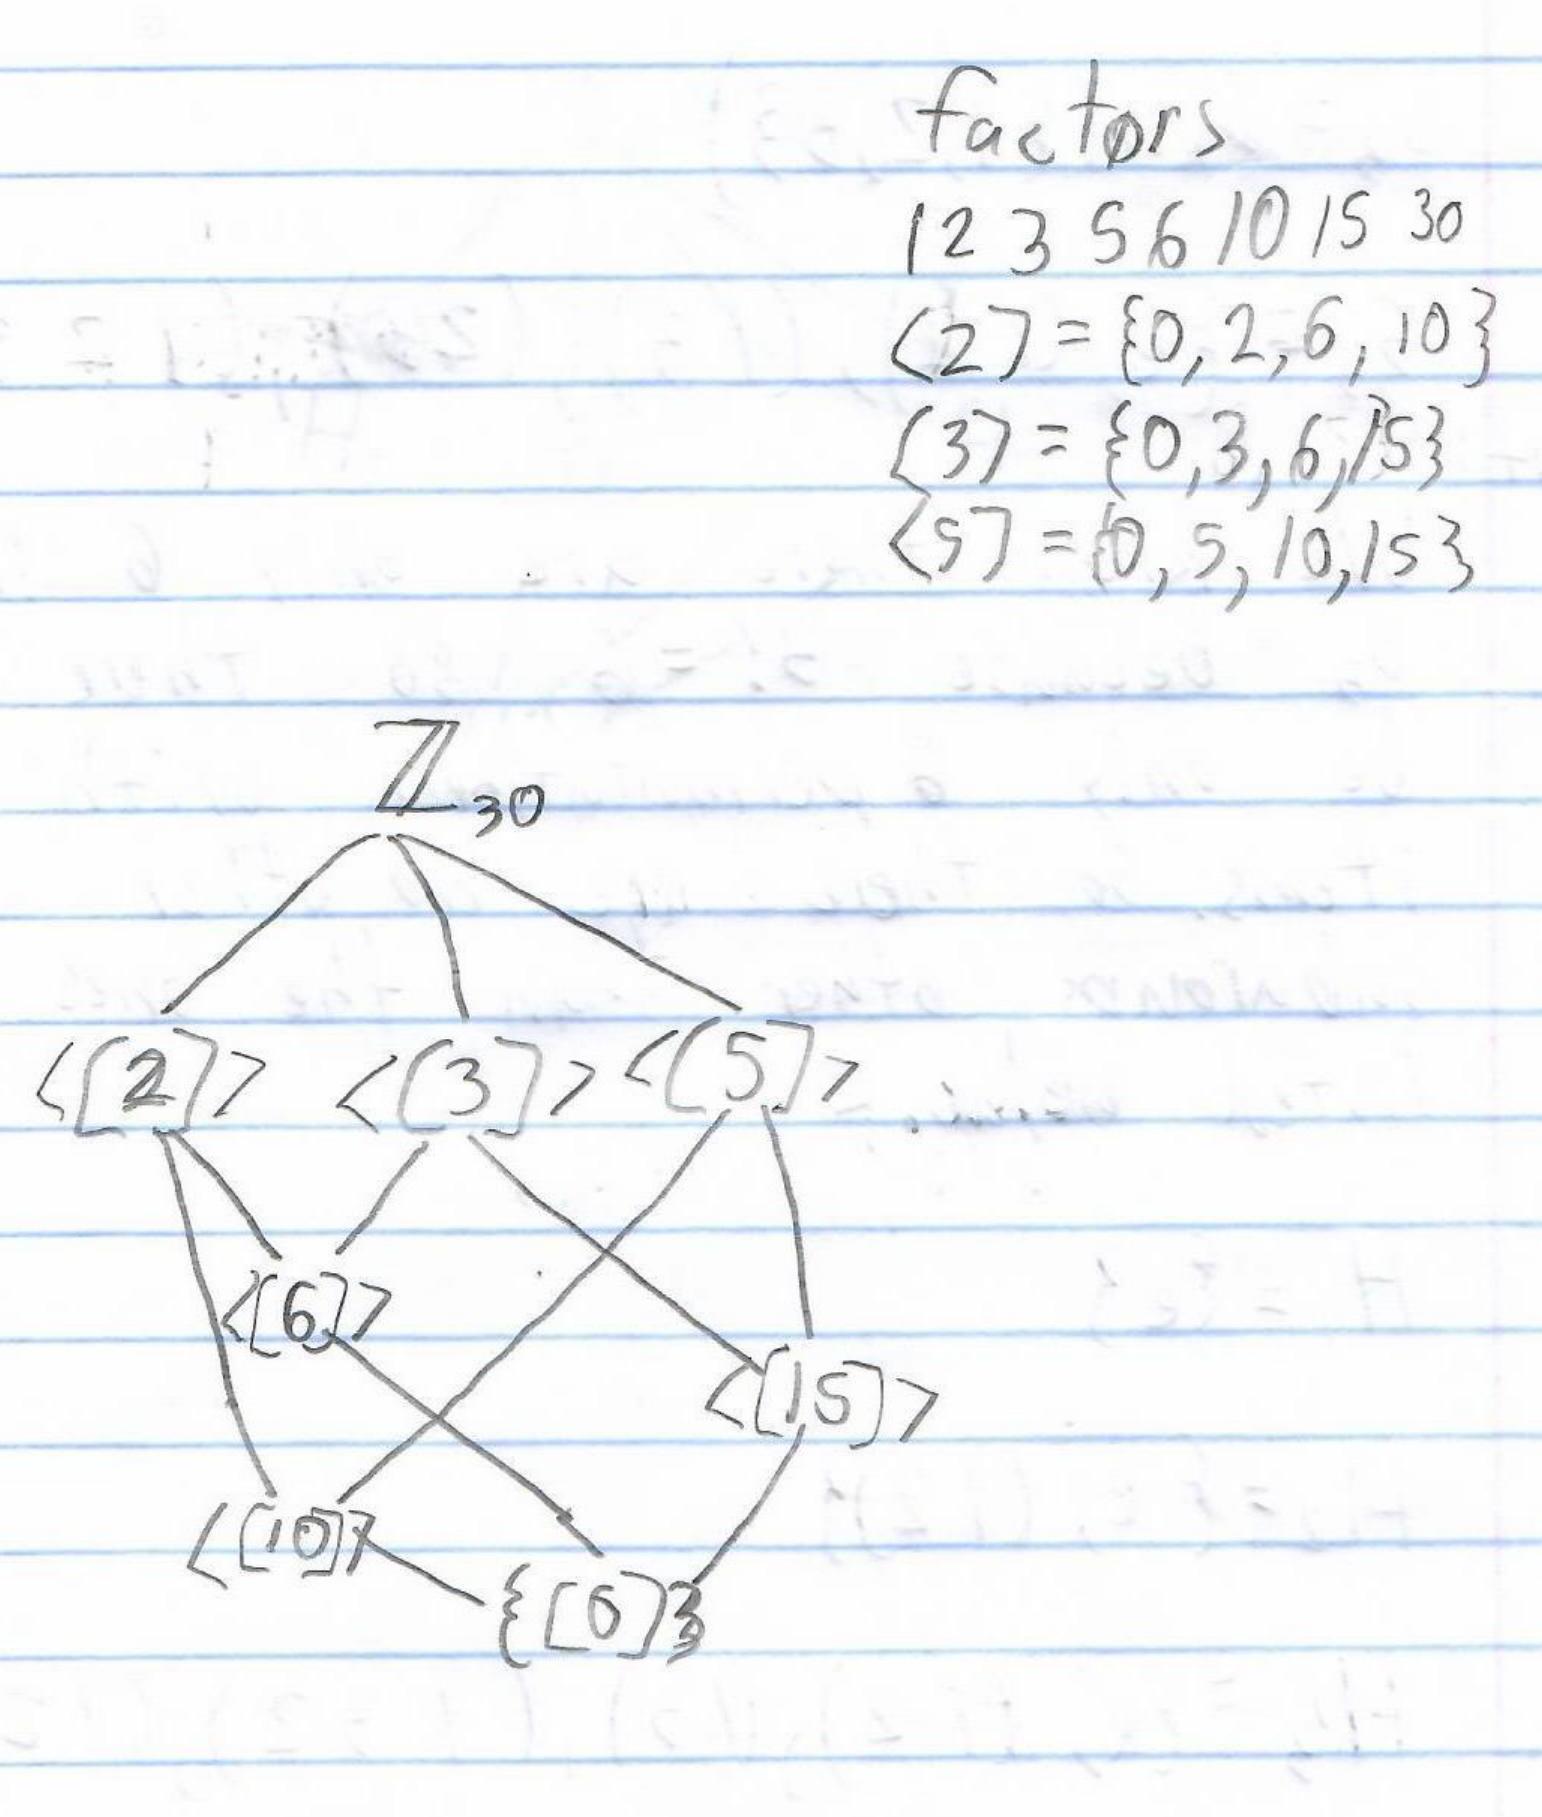 factors
1 2 3 5 6 10 15 30
<2> = {0, 2, 6, 10}
<3> = {0, 3, 6, 15}
<5> = {0, 5, 10, 15}
ℤ₃₀
<[2]> <[3]> <[5]>
<[6]>
<[15]>
<[10]>
{[0]}